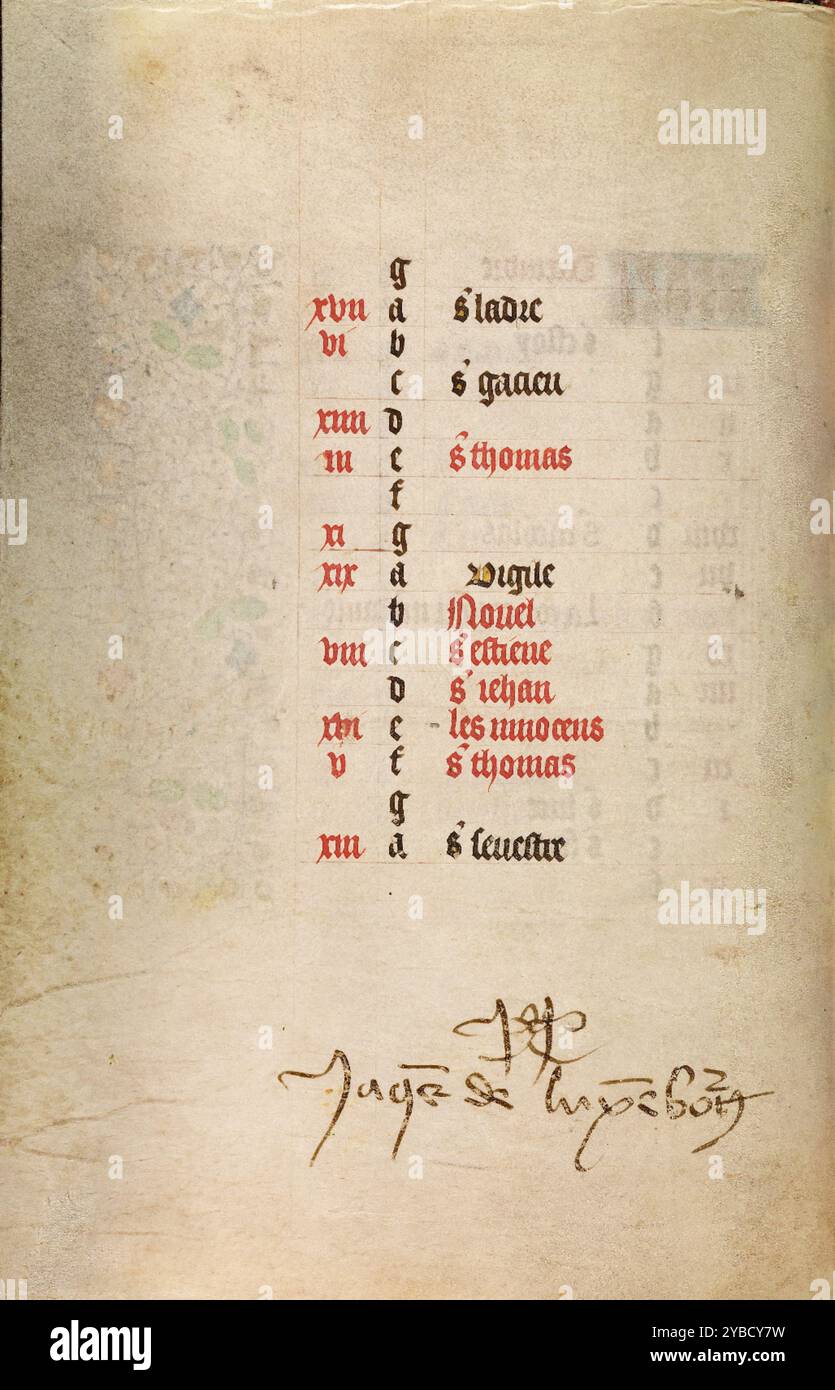 g
xvii a sʼ ladre
vi b
c sʼ gacien
xiiii d
iii e sʼ thomas
f
xi g
xix a vigile
b Nouel
viii c sʼ estiene
d sʼ iehan
xvi e les innocens
v f sʼ thomas
g
xiii a sʼ seuestre
Jaqs de
alamy
Image ID: 2YBCY7W
www.alamy.com